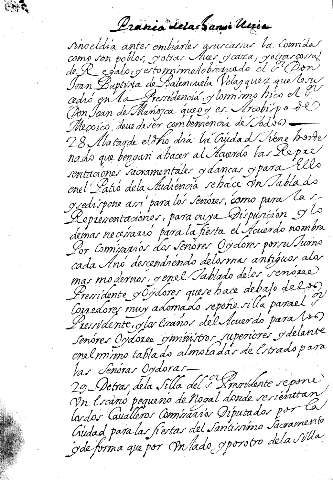 Practica de la Chanci lleria
sino el dia antes embiarles a sus casas la comida
como son pollos, y otras Aves, y caza, y otras cosas
de Regalo, y esto mismo obserbado el Sr Don
Juan Baptista de Balençuela Velazquez que le su
cedio en la Presidencia, y lo mismo hiço el Sr
Don Juan de Mañozca que oy es Arzobispo de
Mexico, deve de ser combeniencia de todos
28. La tarde el dho dia la Ciudad tiene horde
nado que bengan a hacer al Acuerdo las Repre
sentaciones sacramentales y danças, y para ello
en el Patio de la Audiencia se hace Un tablado
y se dispone asi para los Señores, como para las
Representaciones, para cuya Disposicion y lo
demas necesario para la fiesta el Acuerdo nombra
Por Comisarios dos Señores Oydores por su turno
cada Año descendiendo de los mas antiguos a los
mas modernos, y en el tablado de los señores
Presidente y Oydores que se hace debajo de los
Corredores muy adornado se pone silla para el Sr
Presidente, y los Escaños del Acuerdo para los
Señores Oydores y ministros superiores, y delante
en el mismo tablado almoadas de Estrado para
las Señoras Oydoras
29. Detras de la Silla del Sr Presidente se pone
Un Escaño pequeño de Nogal donde se sientan
los dos Cavalleros Comisarios Diputados por la
Ciudad para las fiestas del Santissimo Sacramento
y de forma que por Un lado, y por otro de la Silla